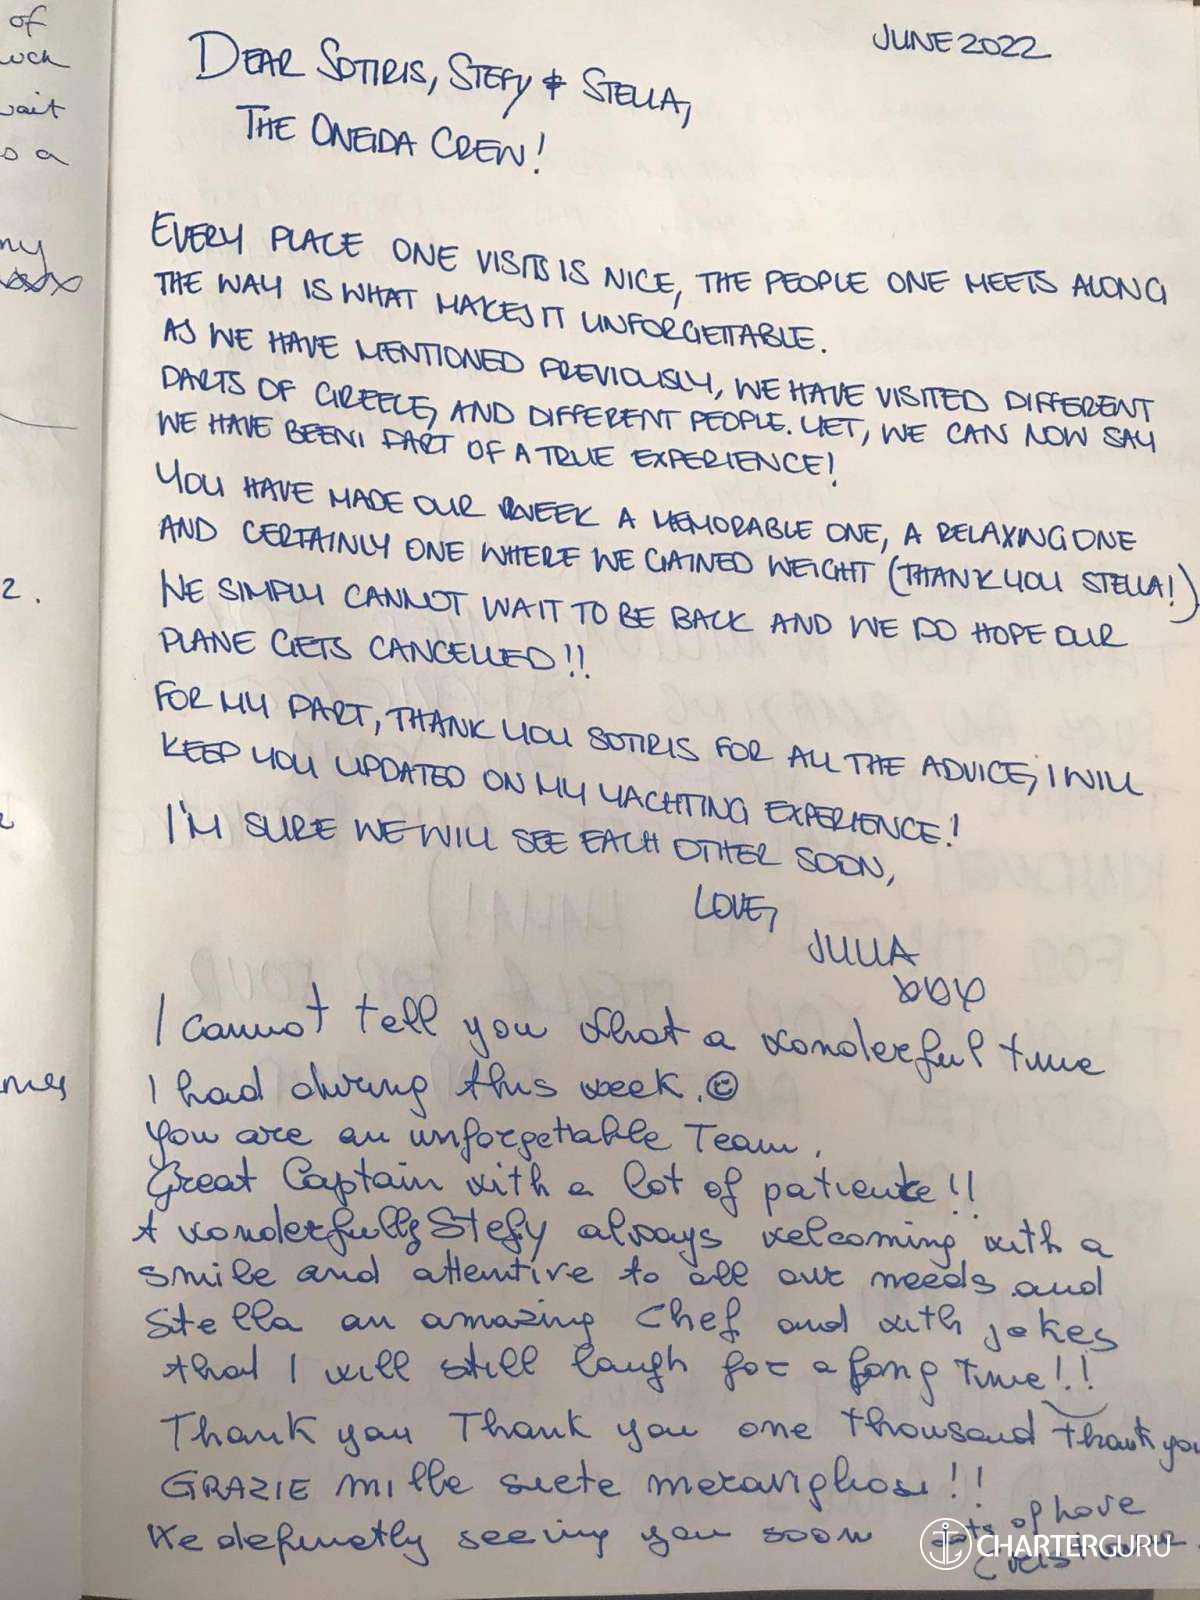 of
wait
so a
my
2.
JUNE 2022
DEAR SOTIRIS, STEFY & STELLA,
THE ONEIDA CREW!
EVERY PLACE ONE VISITS IS NICE, THE PEOPLE ONE MEETS ALONG
THE WAY IS WHAT MAKES IT UNFORGETTABLE.
AS WE HAVE MENTIONED PREVIOUSLY, WE HAVE VISITED DIFFERENT
PARTS OF GREECE, AND DIFFERENT PEOPLE. YET, WE CAN NOW SAY
WE HAVE BEEN PART OF A TRUE EXPERIENCE!
YOU HAVE MADE OUR WEEK A MEMORABLE ONE, A RELAXING ONE
AND CERTAINLY ONE WHERE WE GAINED WEIGHT (THANK YOU STELLA!)
WE SIMPLY CANNOT WAIT TO BE BACK AND WE DO HOPE OUR
PLANE GETS CANCELLED!!
FOR MY PART, THANK YOU SOTIRIS FOR ALL THE ADVICE, I WILL
KEEP YOU UPDATED ON MY YACHTING EXPERIENCE!
I'M SURE WE WILL SEE EACH OTHER SOON,
LOVE,
JULIA
I cannot tell you what a wonderful time
I had during this week. ☺
You are an unforgettable Team.
Great Captain with a lot of patience!!
A wonderfully Stefy always welcoming with a
smile and attentive to all our needs and
Stella an amazing Chef and with jokes
that I will still laugh for a long time!!
Thank you Thank you one thousand thank you
GRAZIE mille siete meravigliosi!!
We definetly seeing you soon
Lots of love
CHARTERGURU